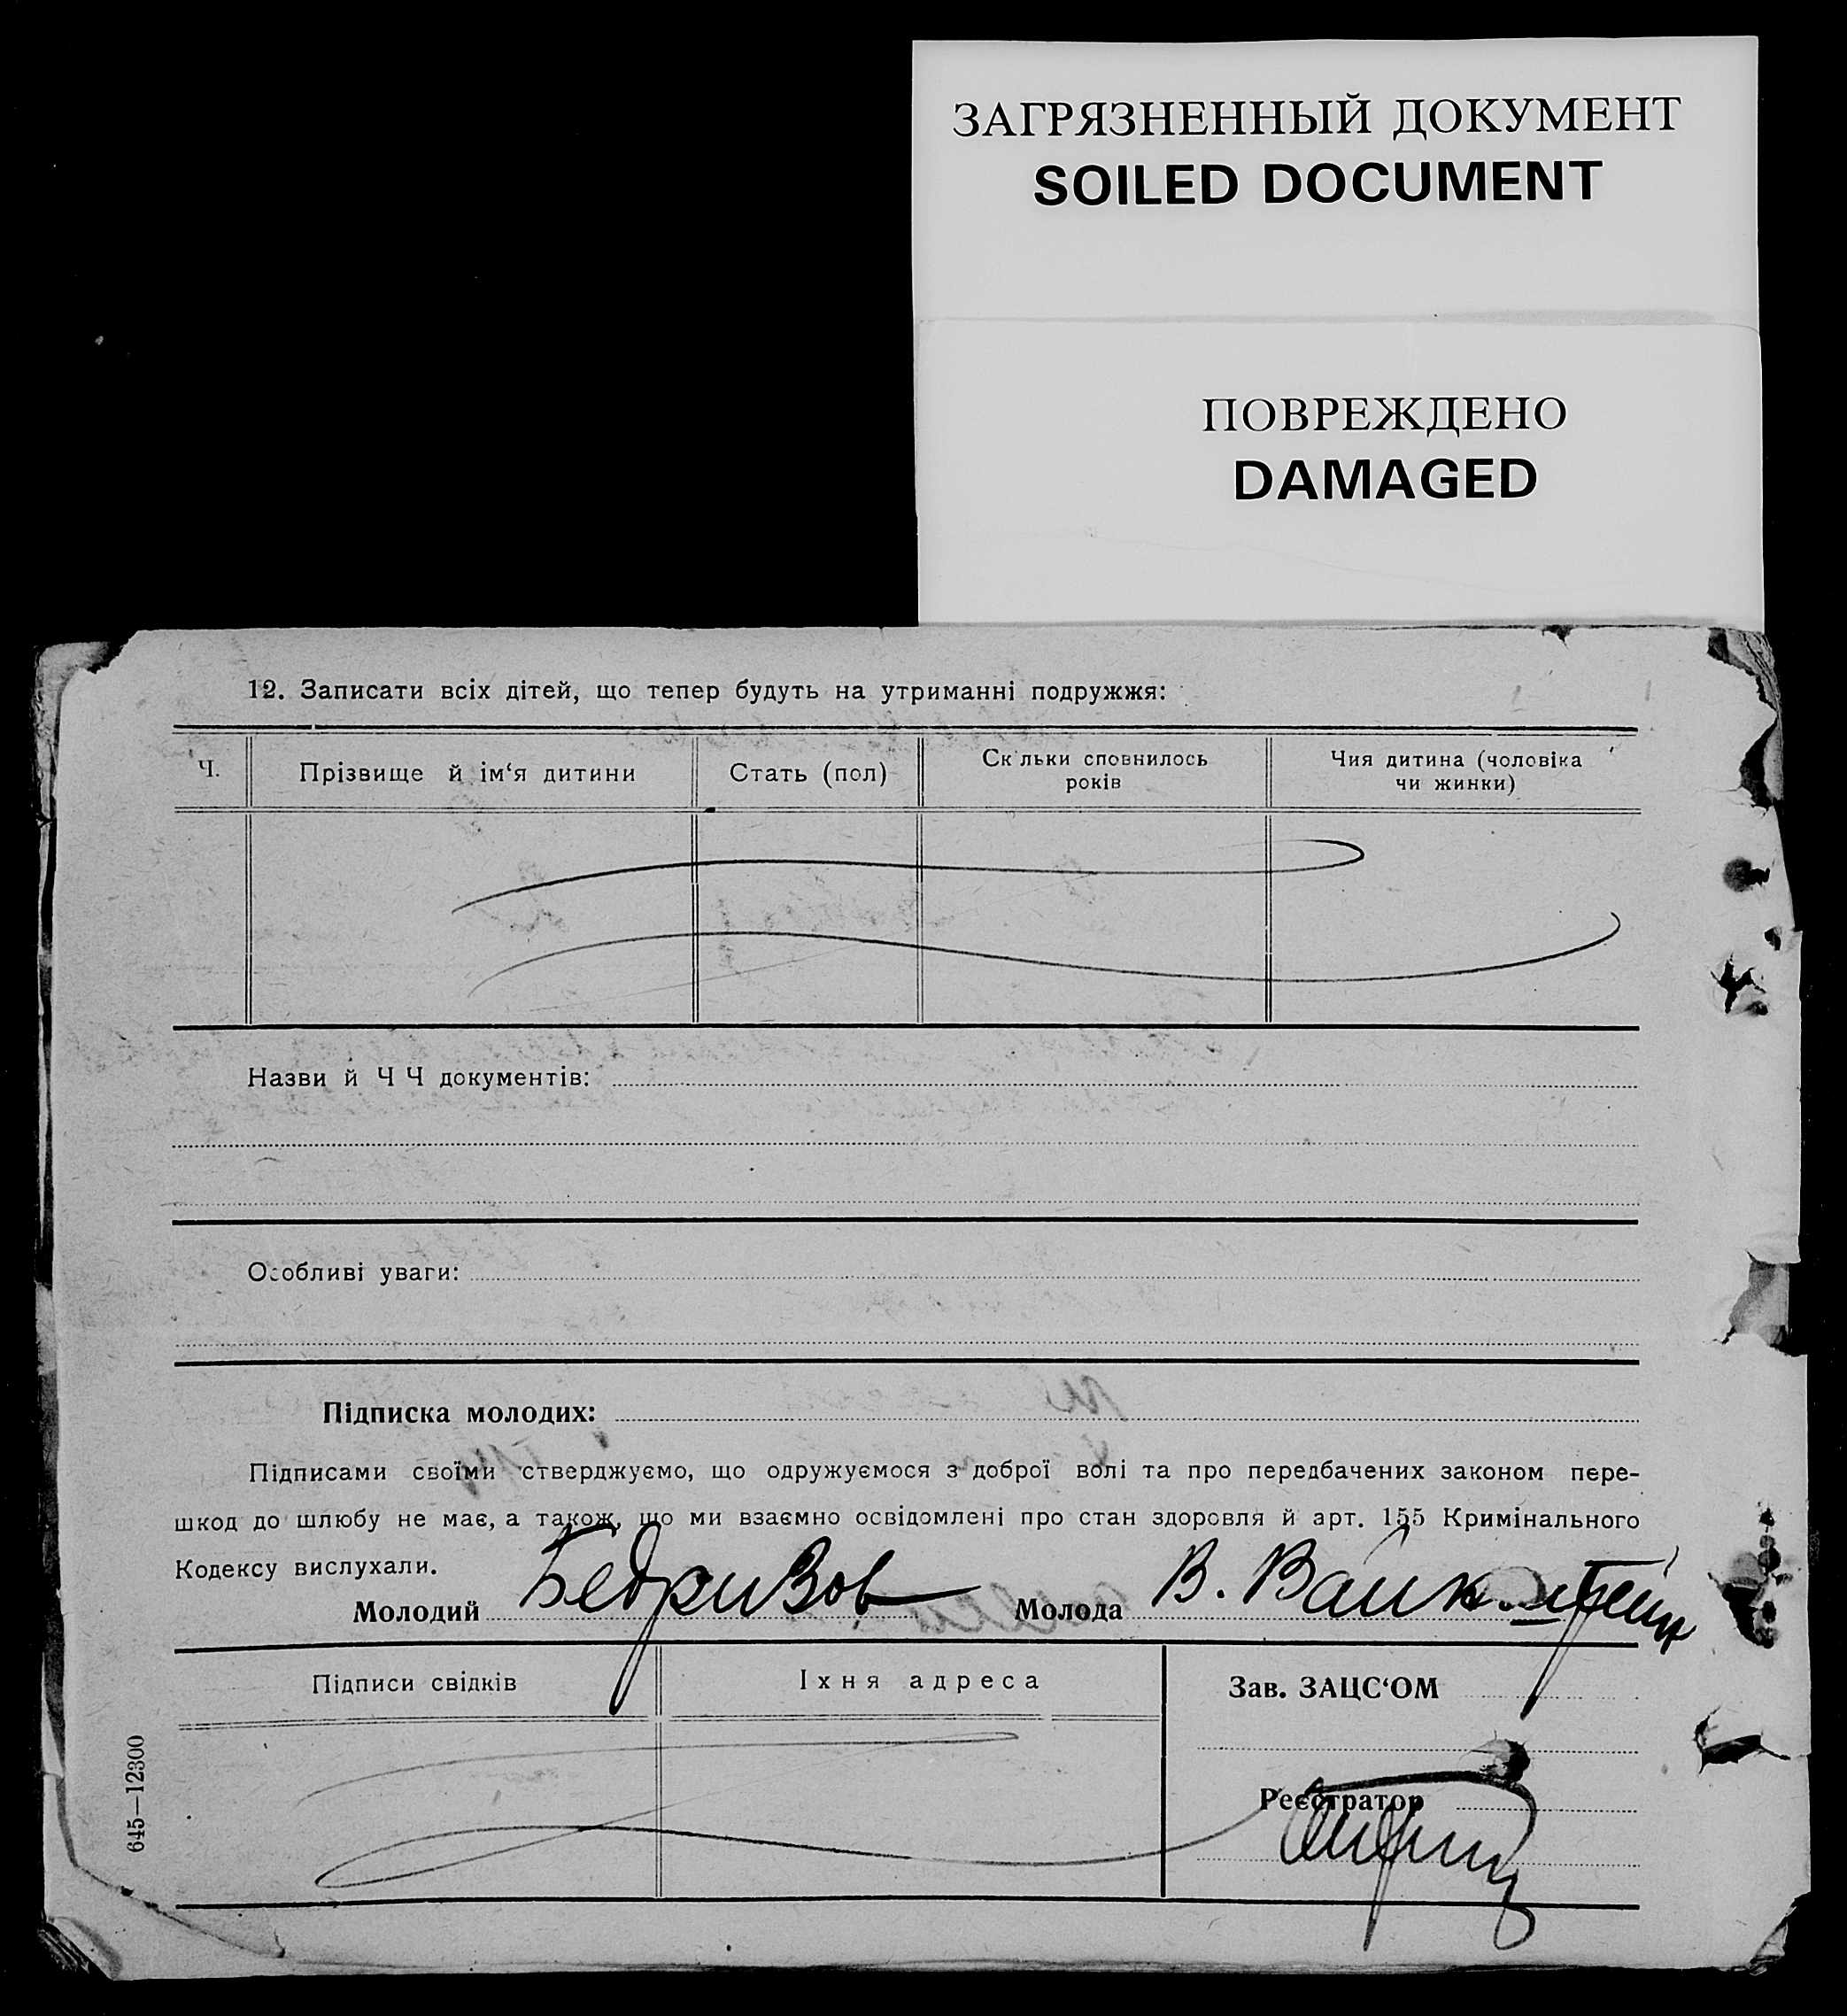 ЗАГРЯЗНЕННЫЙ ДОКУМЕНТ
SOILED DOCUMENT
ПОВРЕЖДЕНО
DAMAGED
12. Записати всіх дітей, що тепер будуть на утриманні подружжя:
Ч.
Прізвище й ім‘я дитини
Стать (пол)
Ск льки сповнилось
років
Чия дитина (чоловіка
чи жинки)
Назви й Ч Ч документів:
Особливі уваги:
Підписка молодих:
Підписами своїми стверджуємо, що одружуємося з доброї волі та про передбачених законом пере-
шкод до шлюбу не має, а також, що ми взаємно освідомлені про стан здоровля й арт. 155 Кримінального
Кодексу вислухали.
Молодий Бедризов Молода В.
Підписи свідків
Іхня адреса
Зав. ЗАЦС‘ОМ
Реєстратор
645—12300